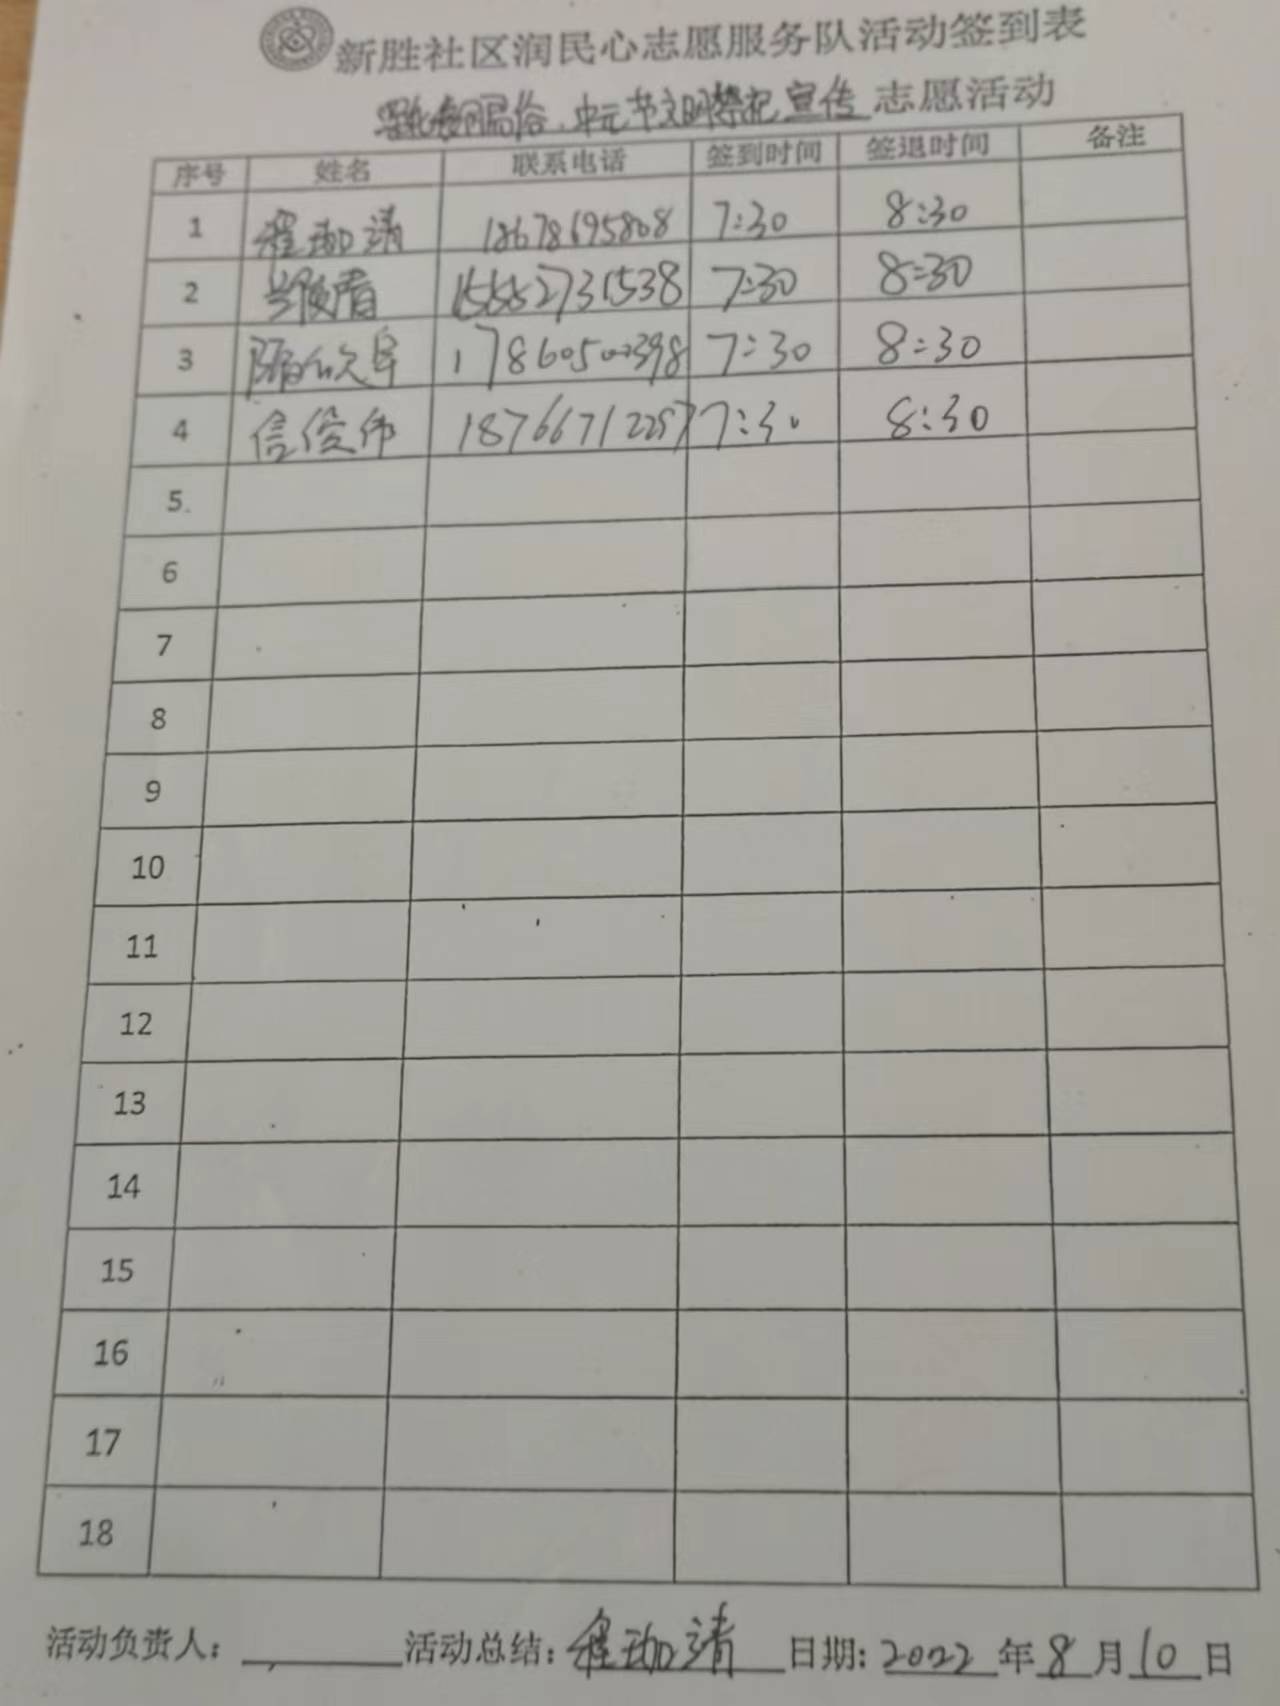 新胜社区润民心志愿服务队活动签到表
中元节文明祭祀宣传志愿活动
序号 姓名 联系电话 签到时间 签退时间 备注
1 程珈靖 18678695808 7:30 8:30
2 15552731538 7:30 8:30
3 7:30 8:30
4 信俊伟 7:30 8:30
5
6
7
8
9
10
11
12
13
14
15
16
17
18
活动负责人: 活动总结: 程珈靖 日期: 2022年8月10日